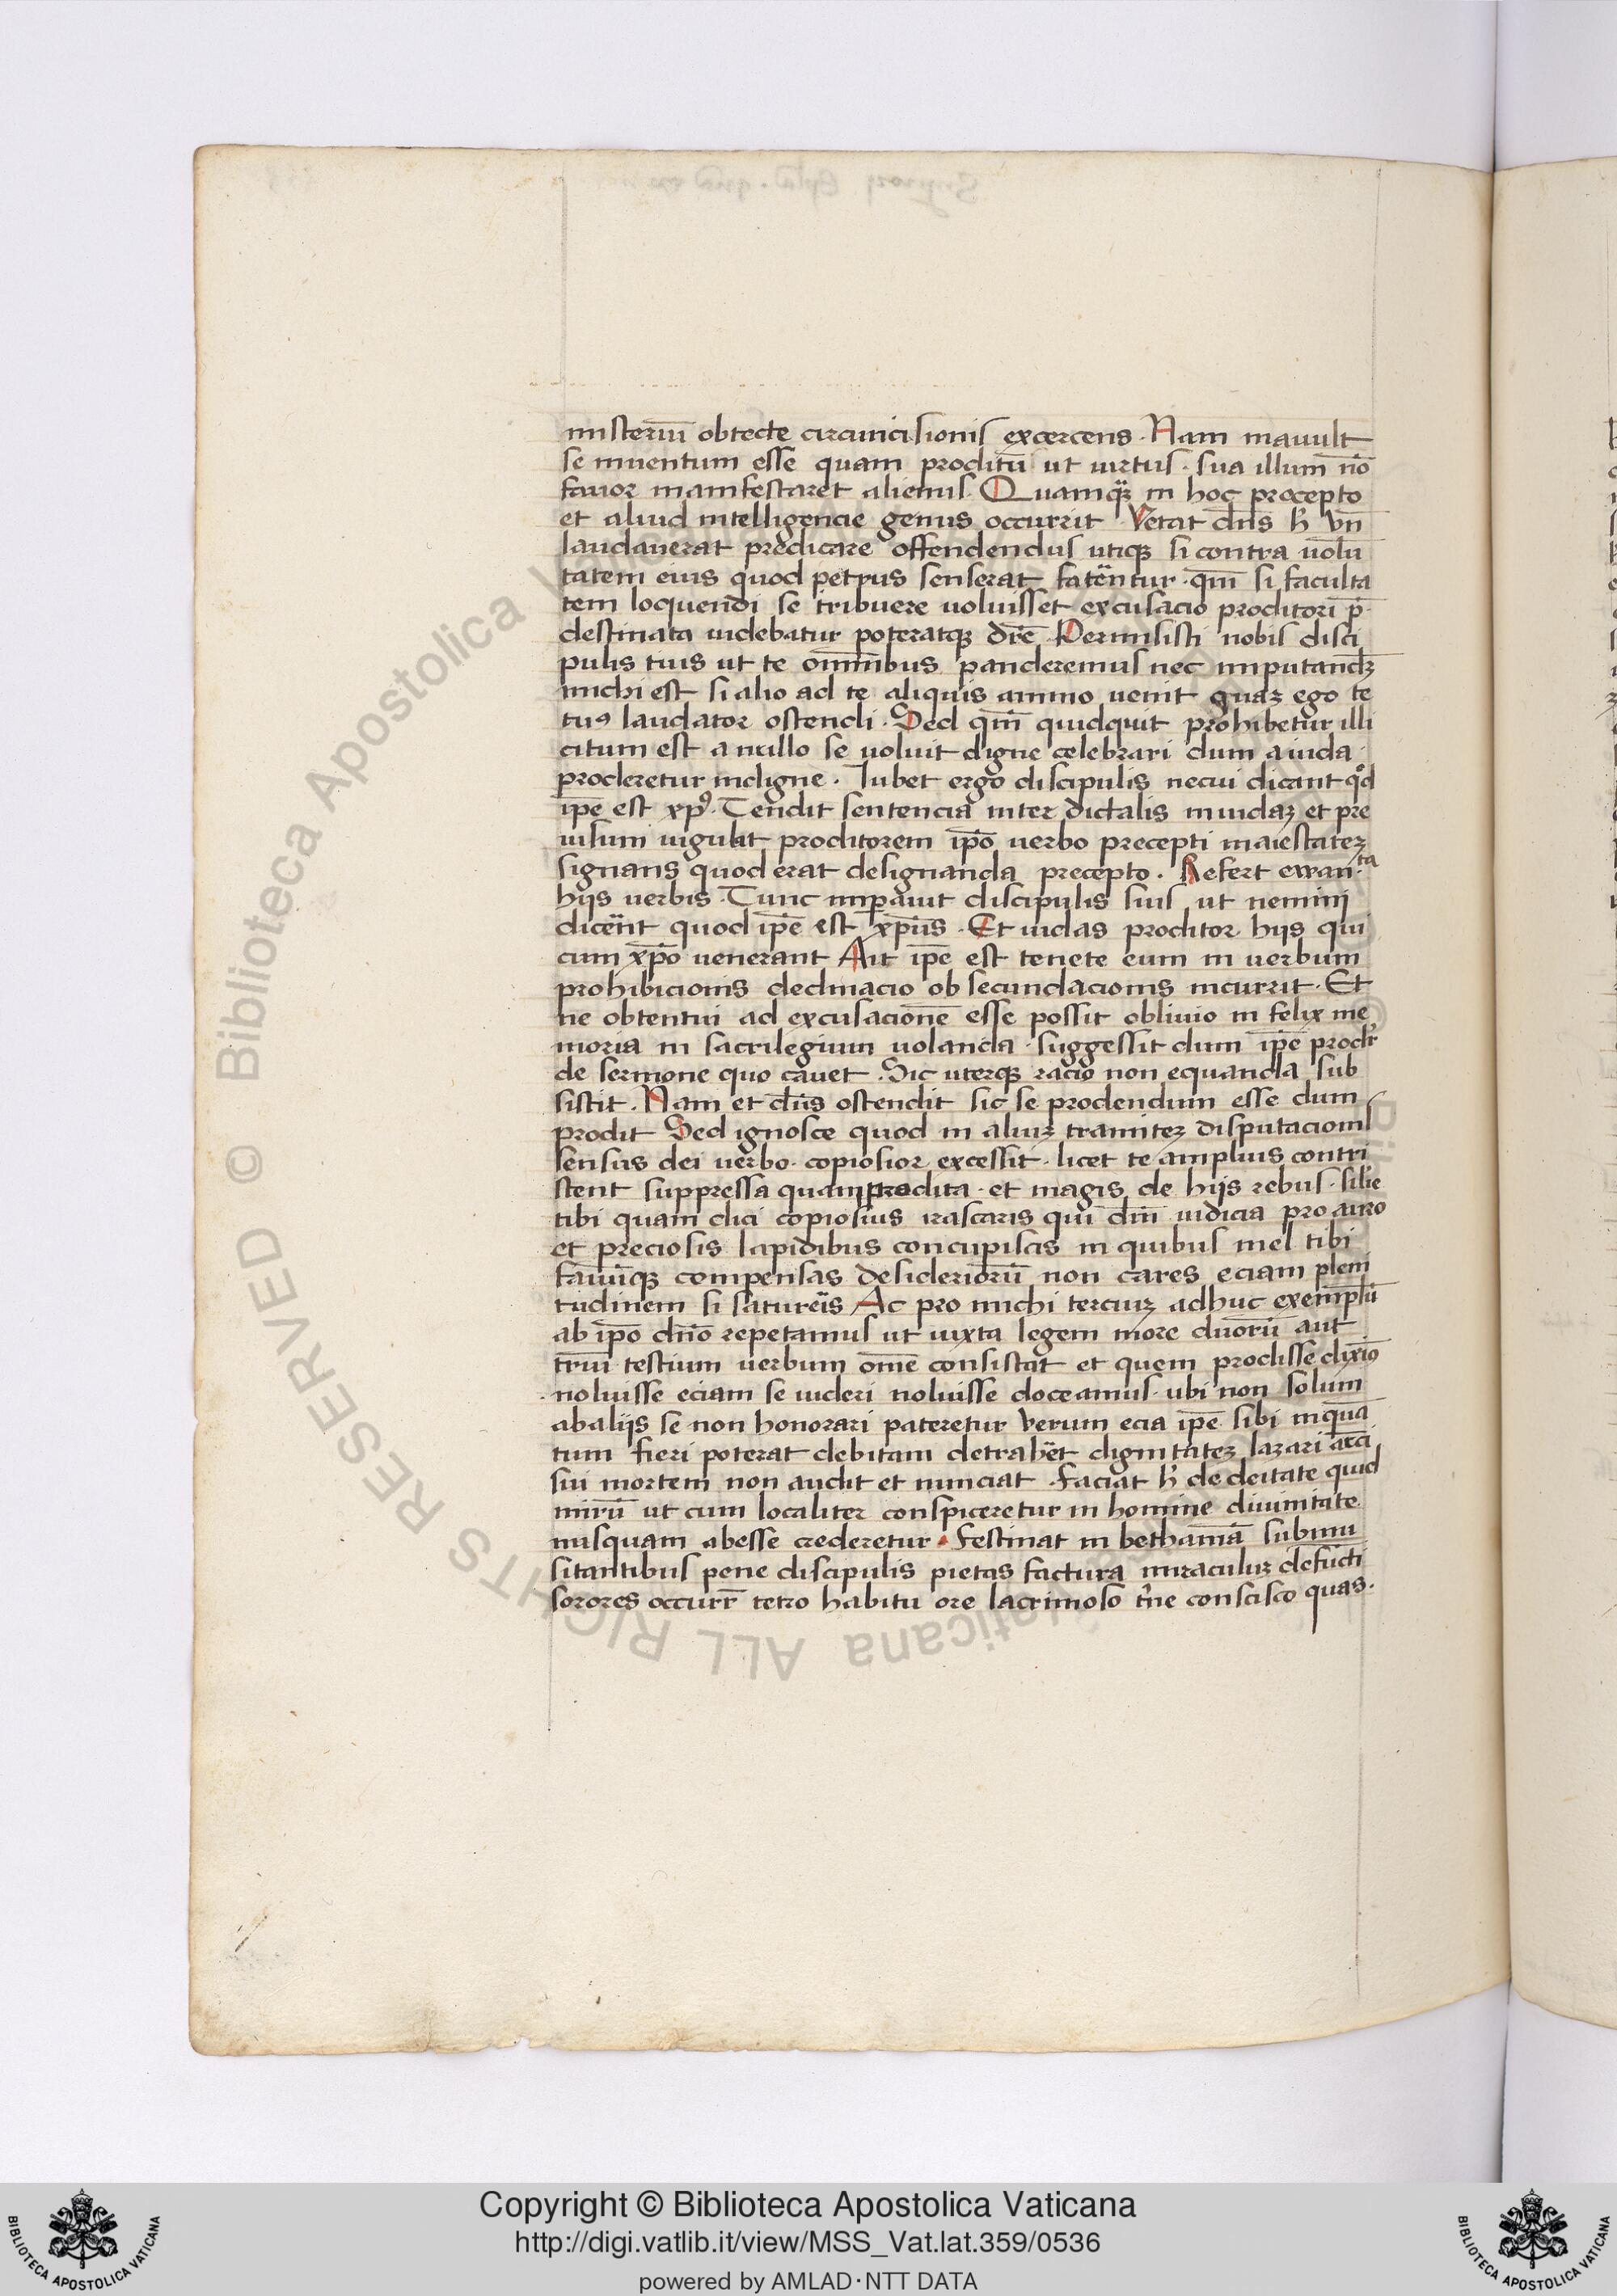 misteriū obtecte circuncisionis excercens. Nam mauult
se inuentum esse quam proditū ut uirtus. sua illum nō
fauor manifestaret alienus. Quamqꝫ in hoc procepto
et aliud intelligencie genus occurrit Vetat dn̄s h̓ vn̄
laudauerat predicare offendendus utiqꝫ si contra uolū
tatem eius quod petrus senserat fatēntur. qm̄ si faculta
tem loquendi se tribuere uoluisset excusacio proditori p̄
destinata uidebatur poteratqꝫ dr̄e Permisisti nobis disci
pulis tuis ut te om̄ibus panderemus nec imputandꝫ
michi est si alio ad te aliquis animo uenit quaꝫ ego te
tuꝰ laudator ostendi. Sed qm̄ quidquit prohibetur illi
citum est a nullo se uoluit digne celebrari dum a iuda.
proderetur indigne. Iubet ergo discipulis necui dicant qd̄
ip̄e est xp̄ꝰ. Tendit sentencia inter dictalis in iudaꝫ et pre
uisum iugulat proditorem ip̄o uerbo precepti maiestateꝫ
signans quod erat designanda precepto. Refert ewan.ta
hijs uerbis. Tunc imꝑauit discipulis suis ut nemini
dicēnt quod ip̄e est xp̄us. Et iudas proditor hijs qui
cum xp̄o uenerant Ait ip̄e est tenete eum in uerbum
prohibicionis declinacio ob secundacionis incurrit. Et
ne obtentui ad excusacionē esse possit obliuio in felix me
moria in sacrilegium uolanda. suggessit dum ip̄e prodr̄
de sermone quo cauet. Sic uterqꝫ racio non equanda sub
sistit. Nam et dn̄s ostendit sic se prodendum esse dum
prodit Sed ignosce quod in aliuꝫ tramiteꝫ disputacionis
sensus dei uerbo. copiosior excessit. licet te amplius contri
stent suppressa quam prodita. et magis de hijs rebus. silīe
tibi quam dici copiosius irascaris qui dn̄i iudicia pro auro
et preciosis lapidibus concupiscis in quibus mel tibi
fauūqꝫ compensas desideriorū non cares eciam pleni
tudinem si saturēis Ac pro michi terciuꝫ adhuc exemplū
ab ip̄o dn̄o repetamus ut iuxta legem more duorū aut
triū testium uerbum om̄e consistat et quem prodisse dix̄io
noluisse eciam se uideri noluisse doceamus. ubi non solum
ab alijs se non honorari pateretur verum eciā ip̄e sibi inquā
tum fieri poterat debitam detrahēt dignitateꝫ lazari atci
sui mortem non audit et nunciat. faciat h̓ de deitate quid
mirū ut cum localiter conspiceretur in homine diuinitate
nusquam abesse crederetur. Festinat in bethaniā submu
sitantibus pene discipulis pietas factura miraculuꝫ defūcti
sorores occurr̄ tetro habitu ore lacrimoso t̓ne conscisco quas.
Copyright © Biblioteca Apostolica Vaticana
http://digi.vatlib.it/view/MSS_Vat.lat.359/0536
powered by AMLAD·NTT DATA
BIBLIOTECA APOSTOLICA VATICANA
BIBLIOTECA APOSTOLICA VATICANA
© Biblioteca Apostolica Vaticana ALL RIGHTS RESERVED